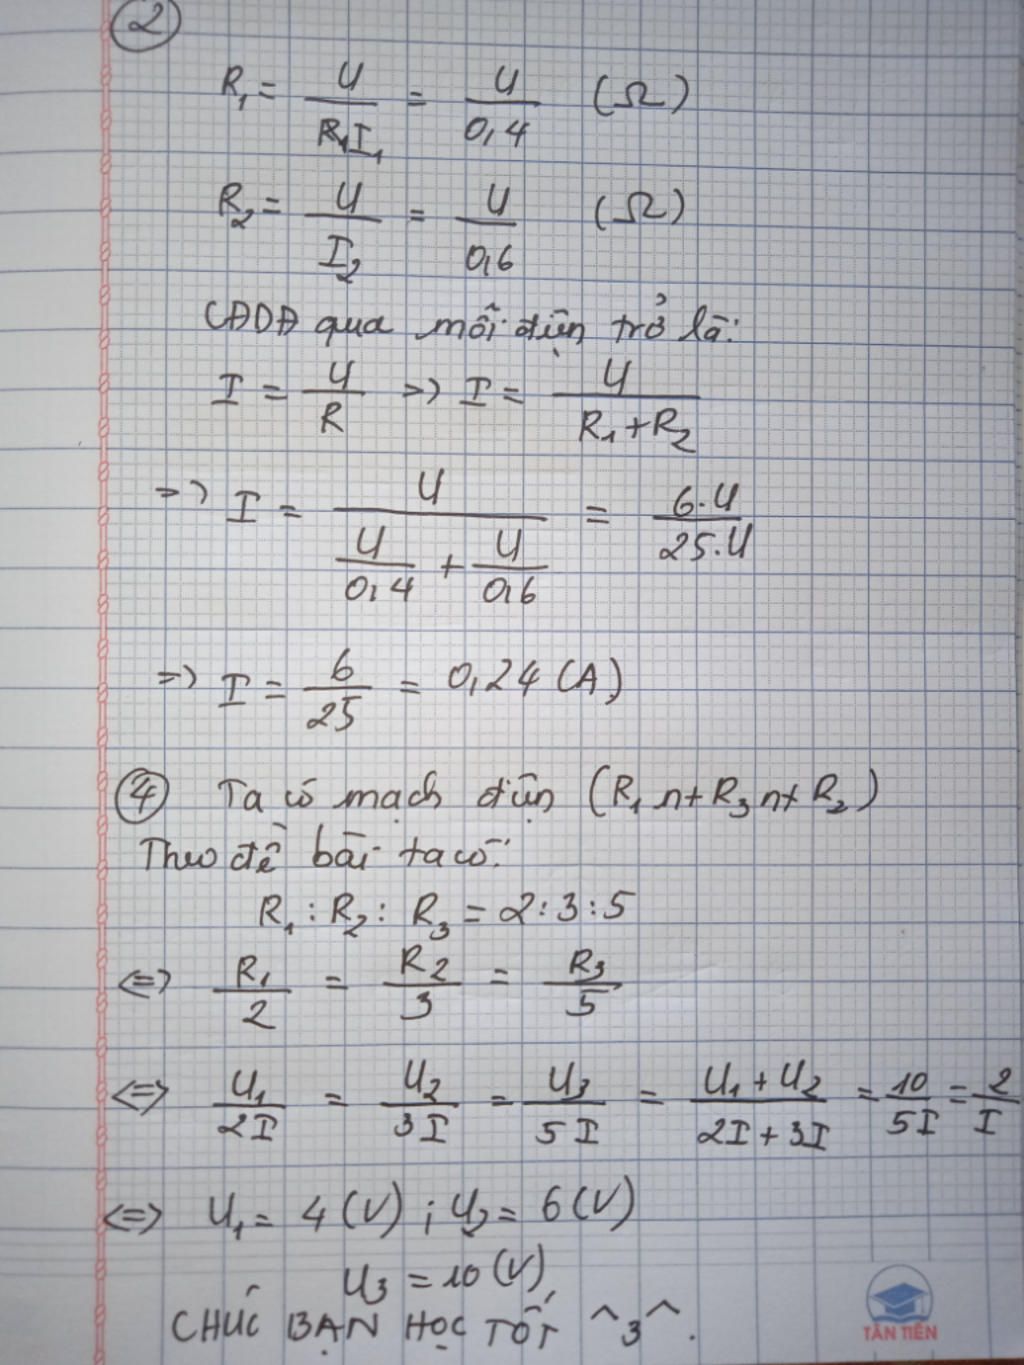 2
R₁ = U / R₁I₁ = U / 0,4 (Ω)
R₂ = U / I₂ = U / 0,6 (Ω)
CĐDĐ qua mỗi điện trở là:
I = U / R => I = U / (R₁ + R₂)
=> I = U / (U / 0,4 + U / 0,6) = 6.U / 25.U
=> I = 6 / 25 = 0,24 (A)
4 Ta có mạch điện (R₁ nt R₃ nt R₂)
Theo đề bài ta có:
R₁ : R₂ : R₃ = 2 : 3 : 5
<=> R₁ / 2 = R₂ / 3 = R₃ / 5
<=> U₁ / 2I = U₂ / 3I = U₃ / 5I = (U₁ + U₂) / (2I + 3I) = 10 / 5I = 2 / I
<=> U₁ = 4 (V) ; U₂ = 6 (V)
U₃ = 10 (V)
CHÚC BẠN HỌC TỐT ^3^.
TÂN TIẾN